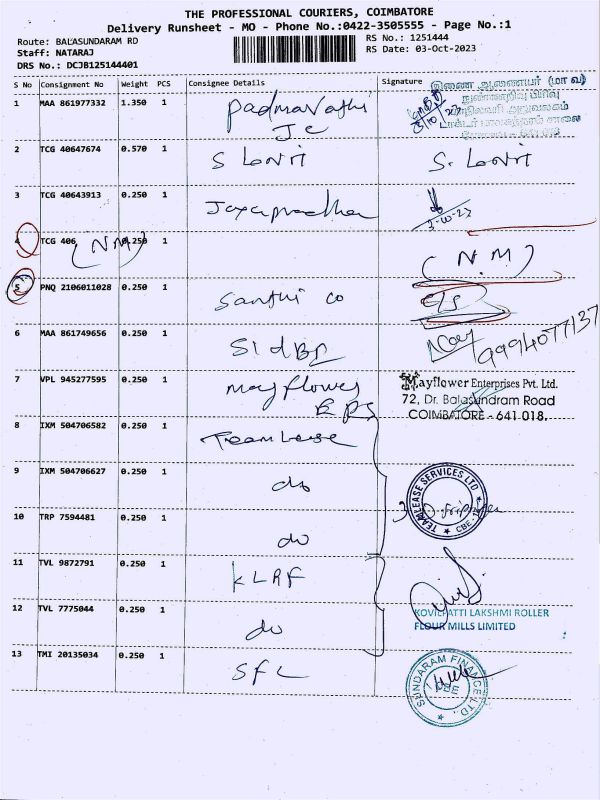 THE PROFESSIONAL COURIERS, COIMBATORE
Delivery Runsheet - MO - Phone No.:0422-3505555 - Page No.:1
Route: BALASUNDARAM RD
RS No.: 1251444
Staff: NATARAJ
RS Date: 03-Oct-2023
DRS No.: DCJB125144401
S No Consignment No Weight PCS Consignee Details Signature
இணை ஆணையர் (மா வ)
நுண்ணறிவு பிரிவு
1 MAA 861977332 1.350 1 Padmavathi
J C
2 TCG 40647674 0.570 1 S Lavni S. Lavni
3 TCG 40643913 0.250 1 Jayapradha
3-10-23
4 TCG 406 (N M) 0.250 1 (N.M)
5 PNQ 2106011028 0.250 1 Santhi co
6 MAA 861749656 0.250 1 SIDBI 9994077137
7 VPL 945277595 0.250 1 mayflower
EPS
Mayflower Enterprises Pvt. Ltd.
72, Dr. Balasundram Road
COIMBATORE - 641 018.
8 IXM 504706582 0.250 1 TeamLease
9 IXM 504706627 0.250 1 do
TEAMLEASE SERVICES LTD
CBE-18
10 TRP 7594481 0.250 1 do
11 TVL 9872791 0.250 1 KLRF
12 TVL 7775044 0.250 1 do
KOVILPATTI LAKSHMI ROLLER
FLOUR MILLS LIMITED
13 TMI 20135034 0.250 1 SFL
SUNDARAM FINANCE LTD.,
CBE